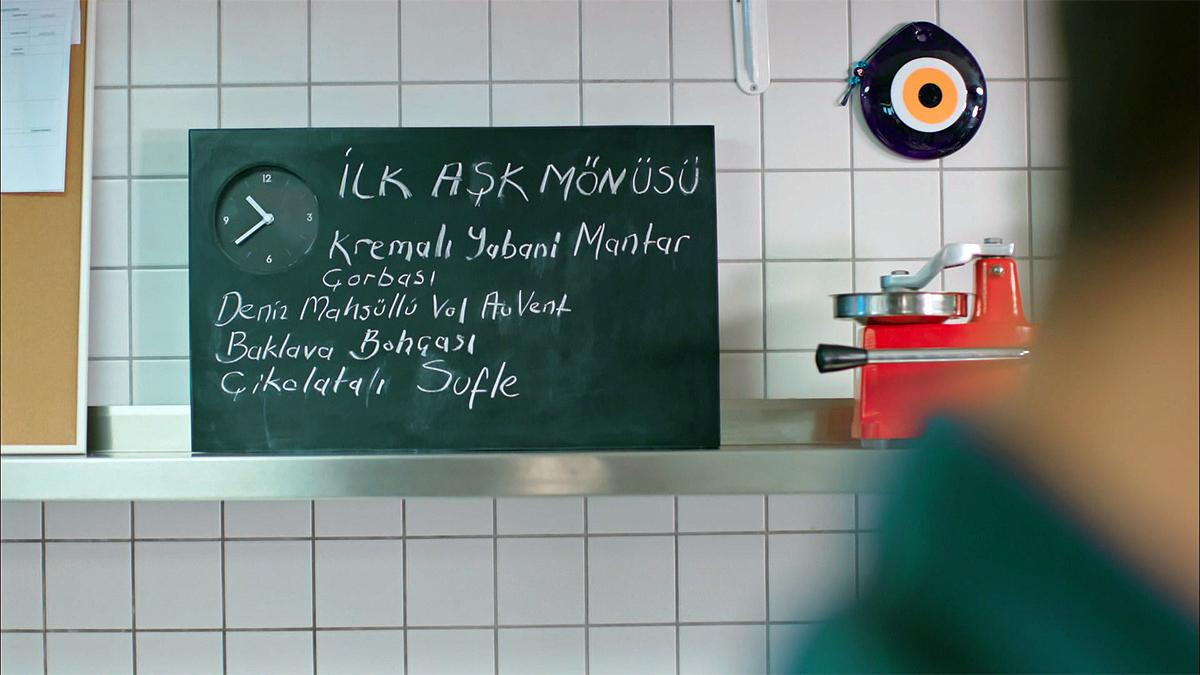 İLK AŞK MÖNÜSÜ
Kremalı Yabani Mantar
Çorbası
Deniz Mahsüllü Vol AuVent
Baklava Bohçası
Çikolatalı Sufle
12
3
6
9